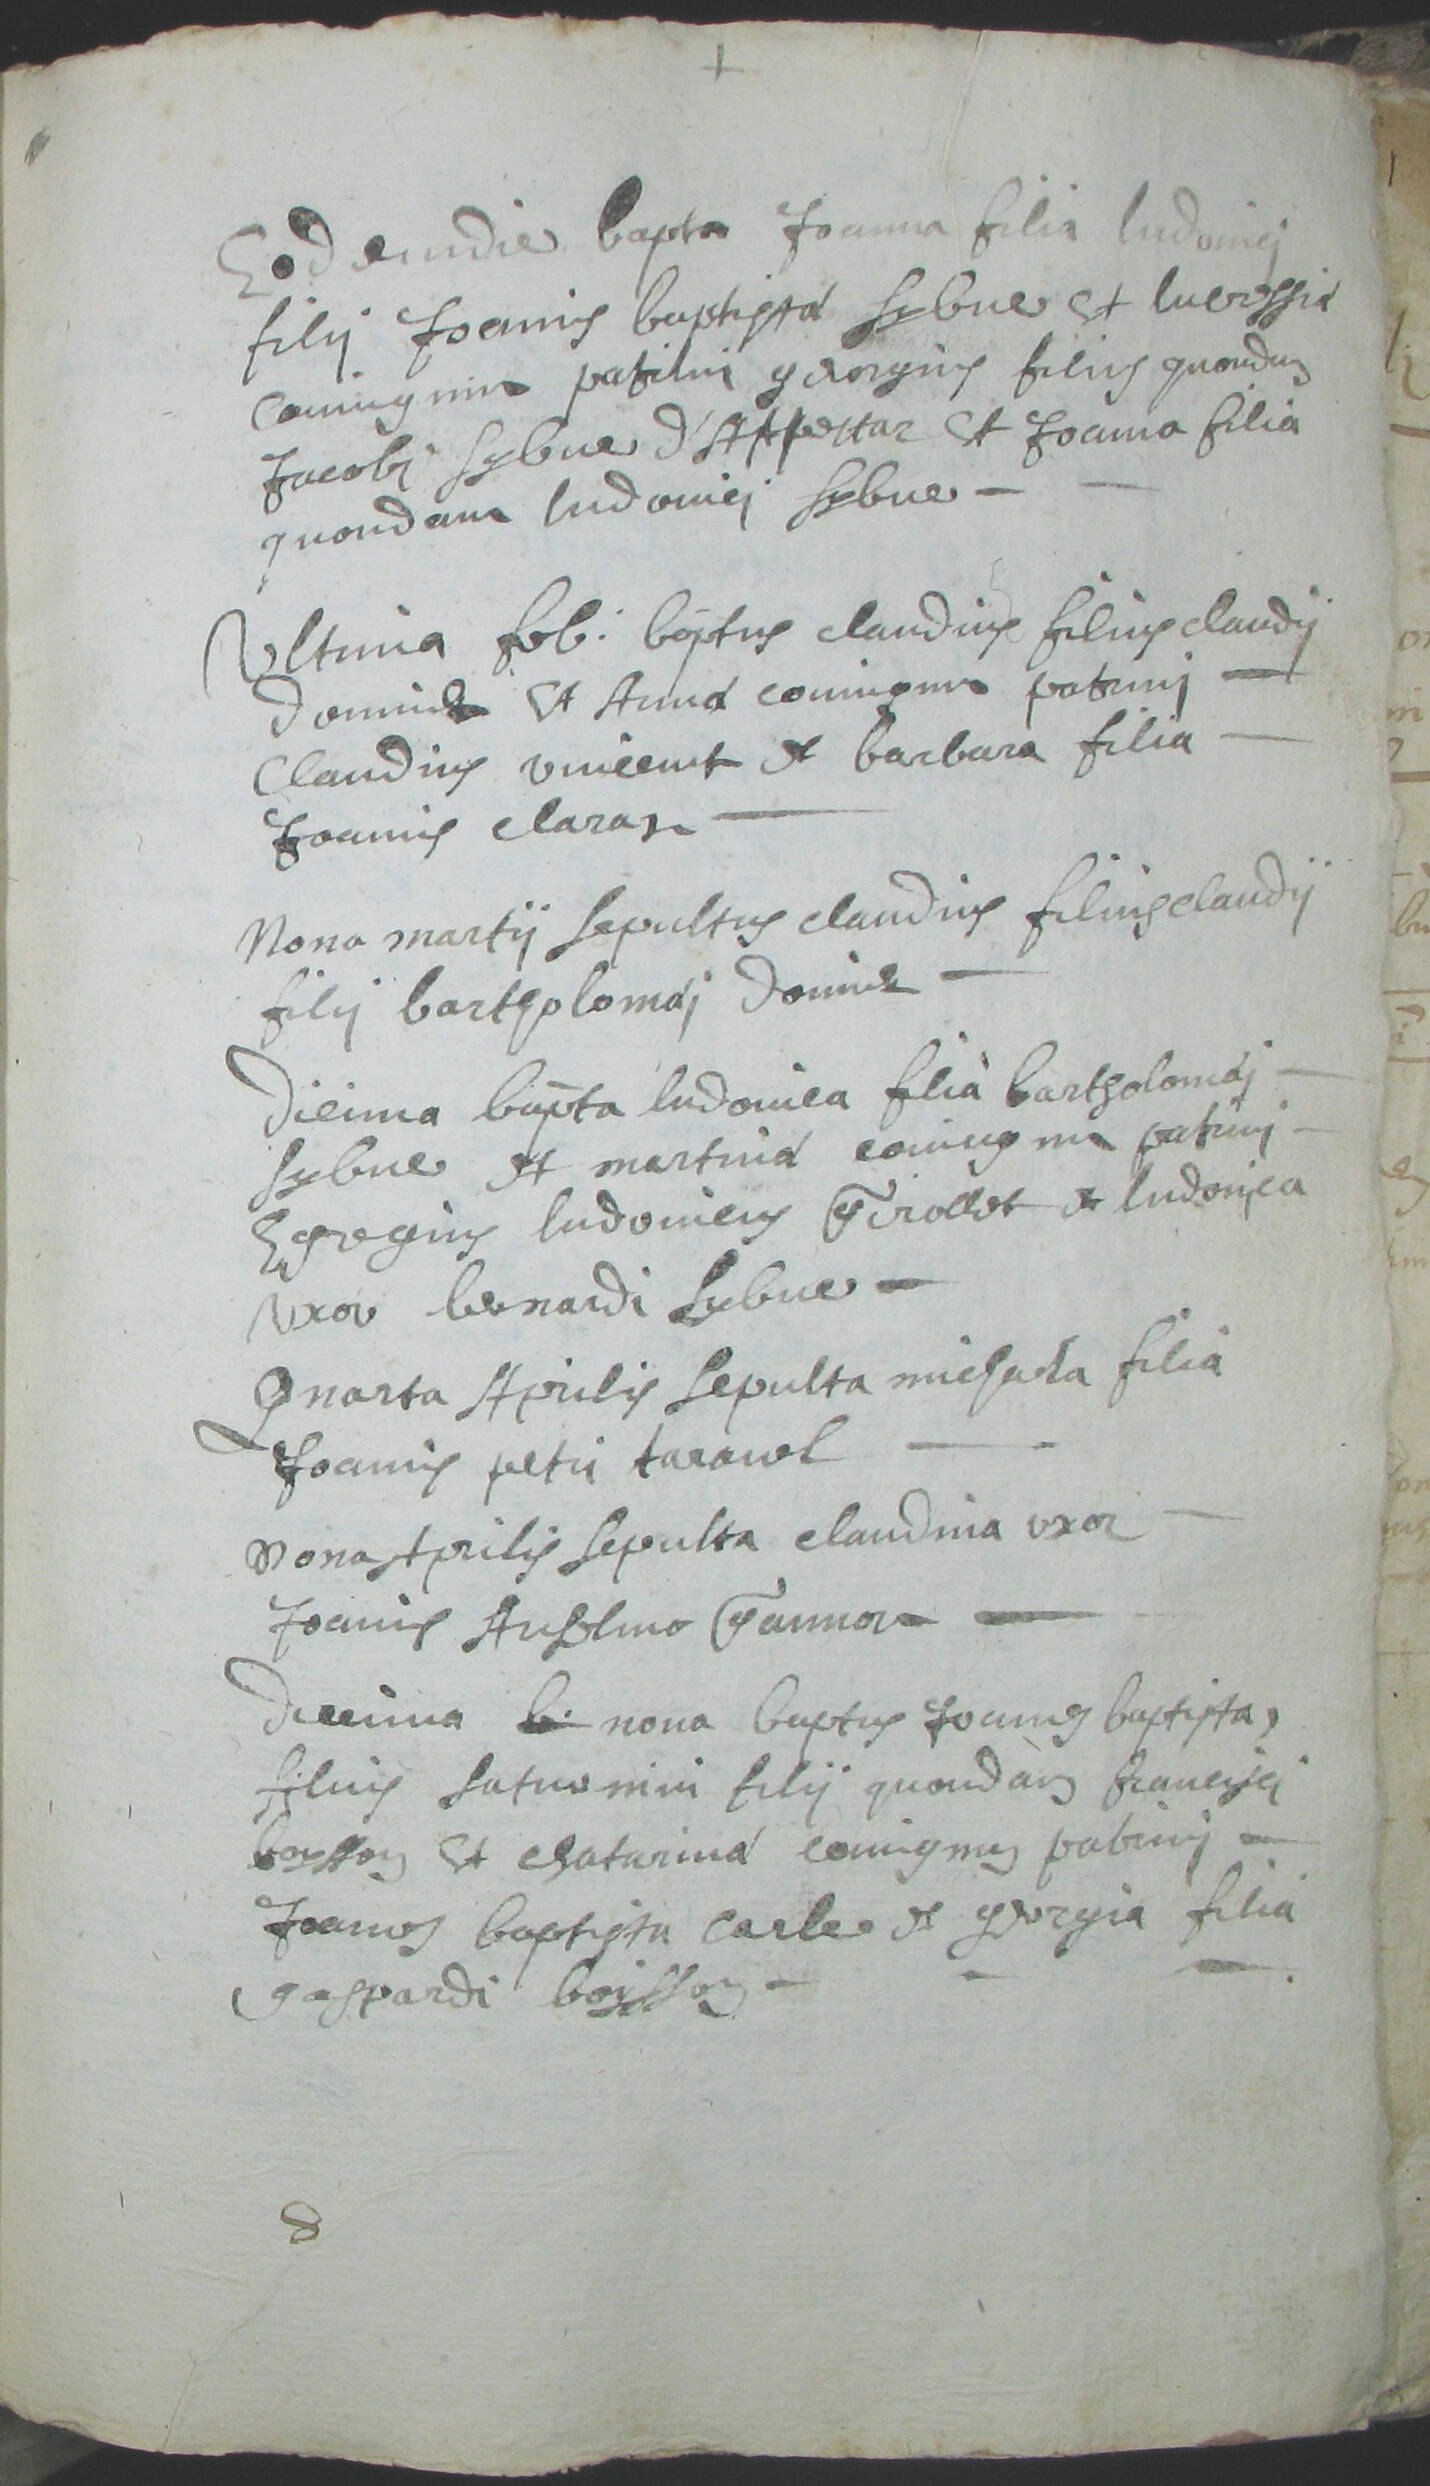 Eodemdie bapta Joanna filia ludovicj
filij Joanis baptistæ sybue et lucressiæ
coniugum patrini georgius filius quondam
Jacobj sybue d'Appestar et Joana filia
quondam ludovicj sybue
Ultima feb. baptus claudius filius claudij
dominic et Annæ coniugum patrinj
Claudius vincent et barbara filia
Joanis claras
Nona martij sepultus claudius filius claudij
filij bartholomæj
Dicima bapta ludovica filia bartholomæj
sybue et martinæ coniugum patrinj
Egregius ludovicus et ludovica
uxor bernardi sybue
Quarta Aprilis sepulta michaela filia
Joanis petri taravel
Nona Aprilis sepulta claudina uxor
Joanis Anselmo
Decima nona baptus Joanes baptista,
filius saturnini filij quondam francisci
boysson et chatarinæ coniugum patrinj
Joanes baptista carle et georgia filia
gaspardi boysson
8